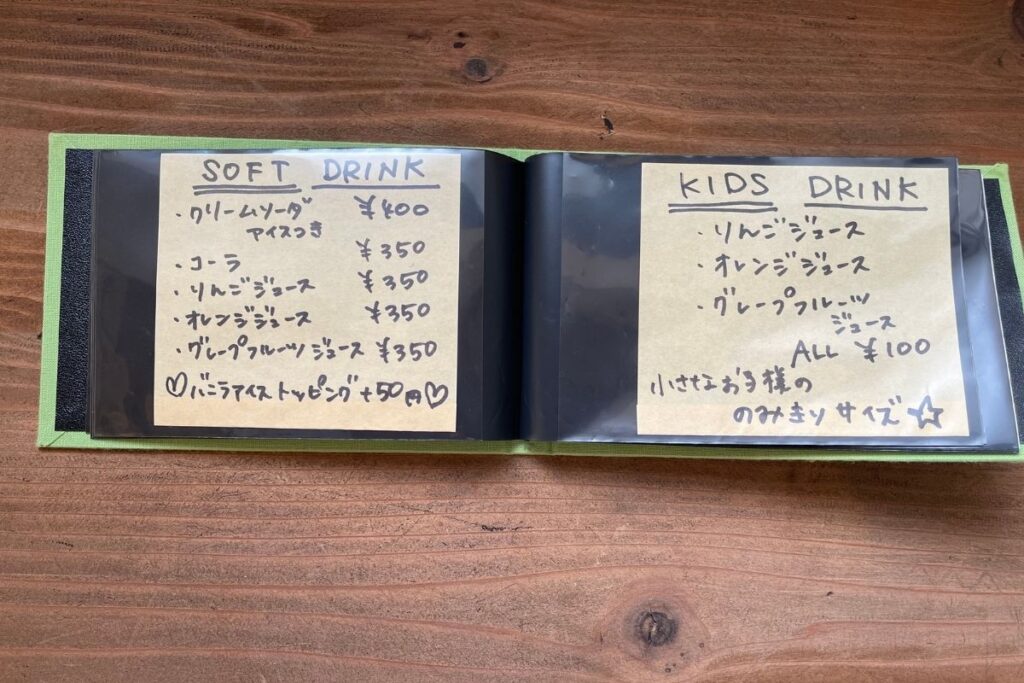 SOFT DRINK
・クリームソーダ ¥400
アイスつき
・コーラ ¥350
・りんごジュース ¥350
・オレンジジュース ¥350
・グレープフルーツジュース ¥350
♡バニラアイストッピング+50円♡
KIDS DRINK
・りんごジュース
・オレンジジュース
・グレープフルーツ
ジュース
ALL ¥100
小さなお子様の
のみきりサイズ☆